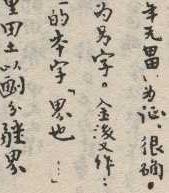 年无为证，很确。
为另字。金后又作：
的本字「界也」
里田土以劃分疆界